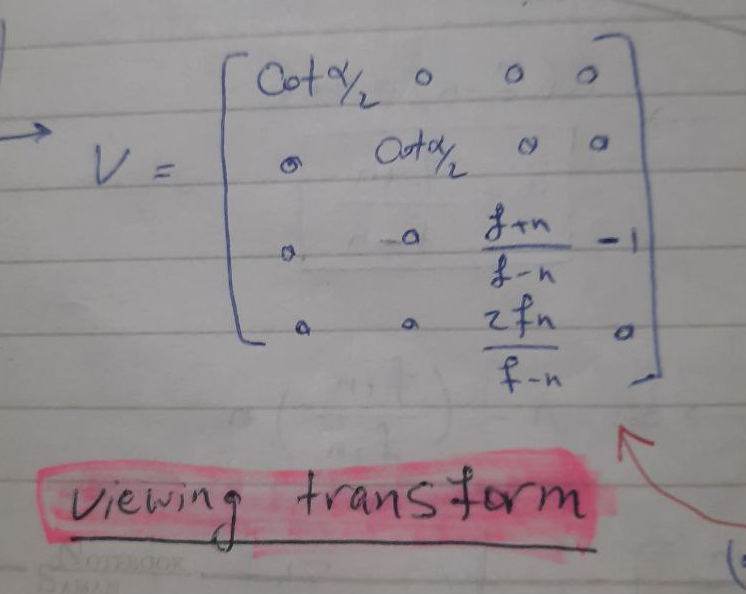 → V = [ Cot α/2 0 0 0
0 Cot α/2 0 0
0 0 f+n/f-n -1
0 0 2fn/f-n 0 ]
viewing transform
NOTEBOOK